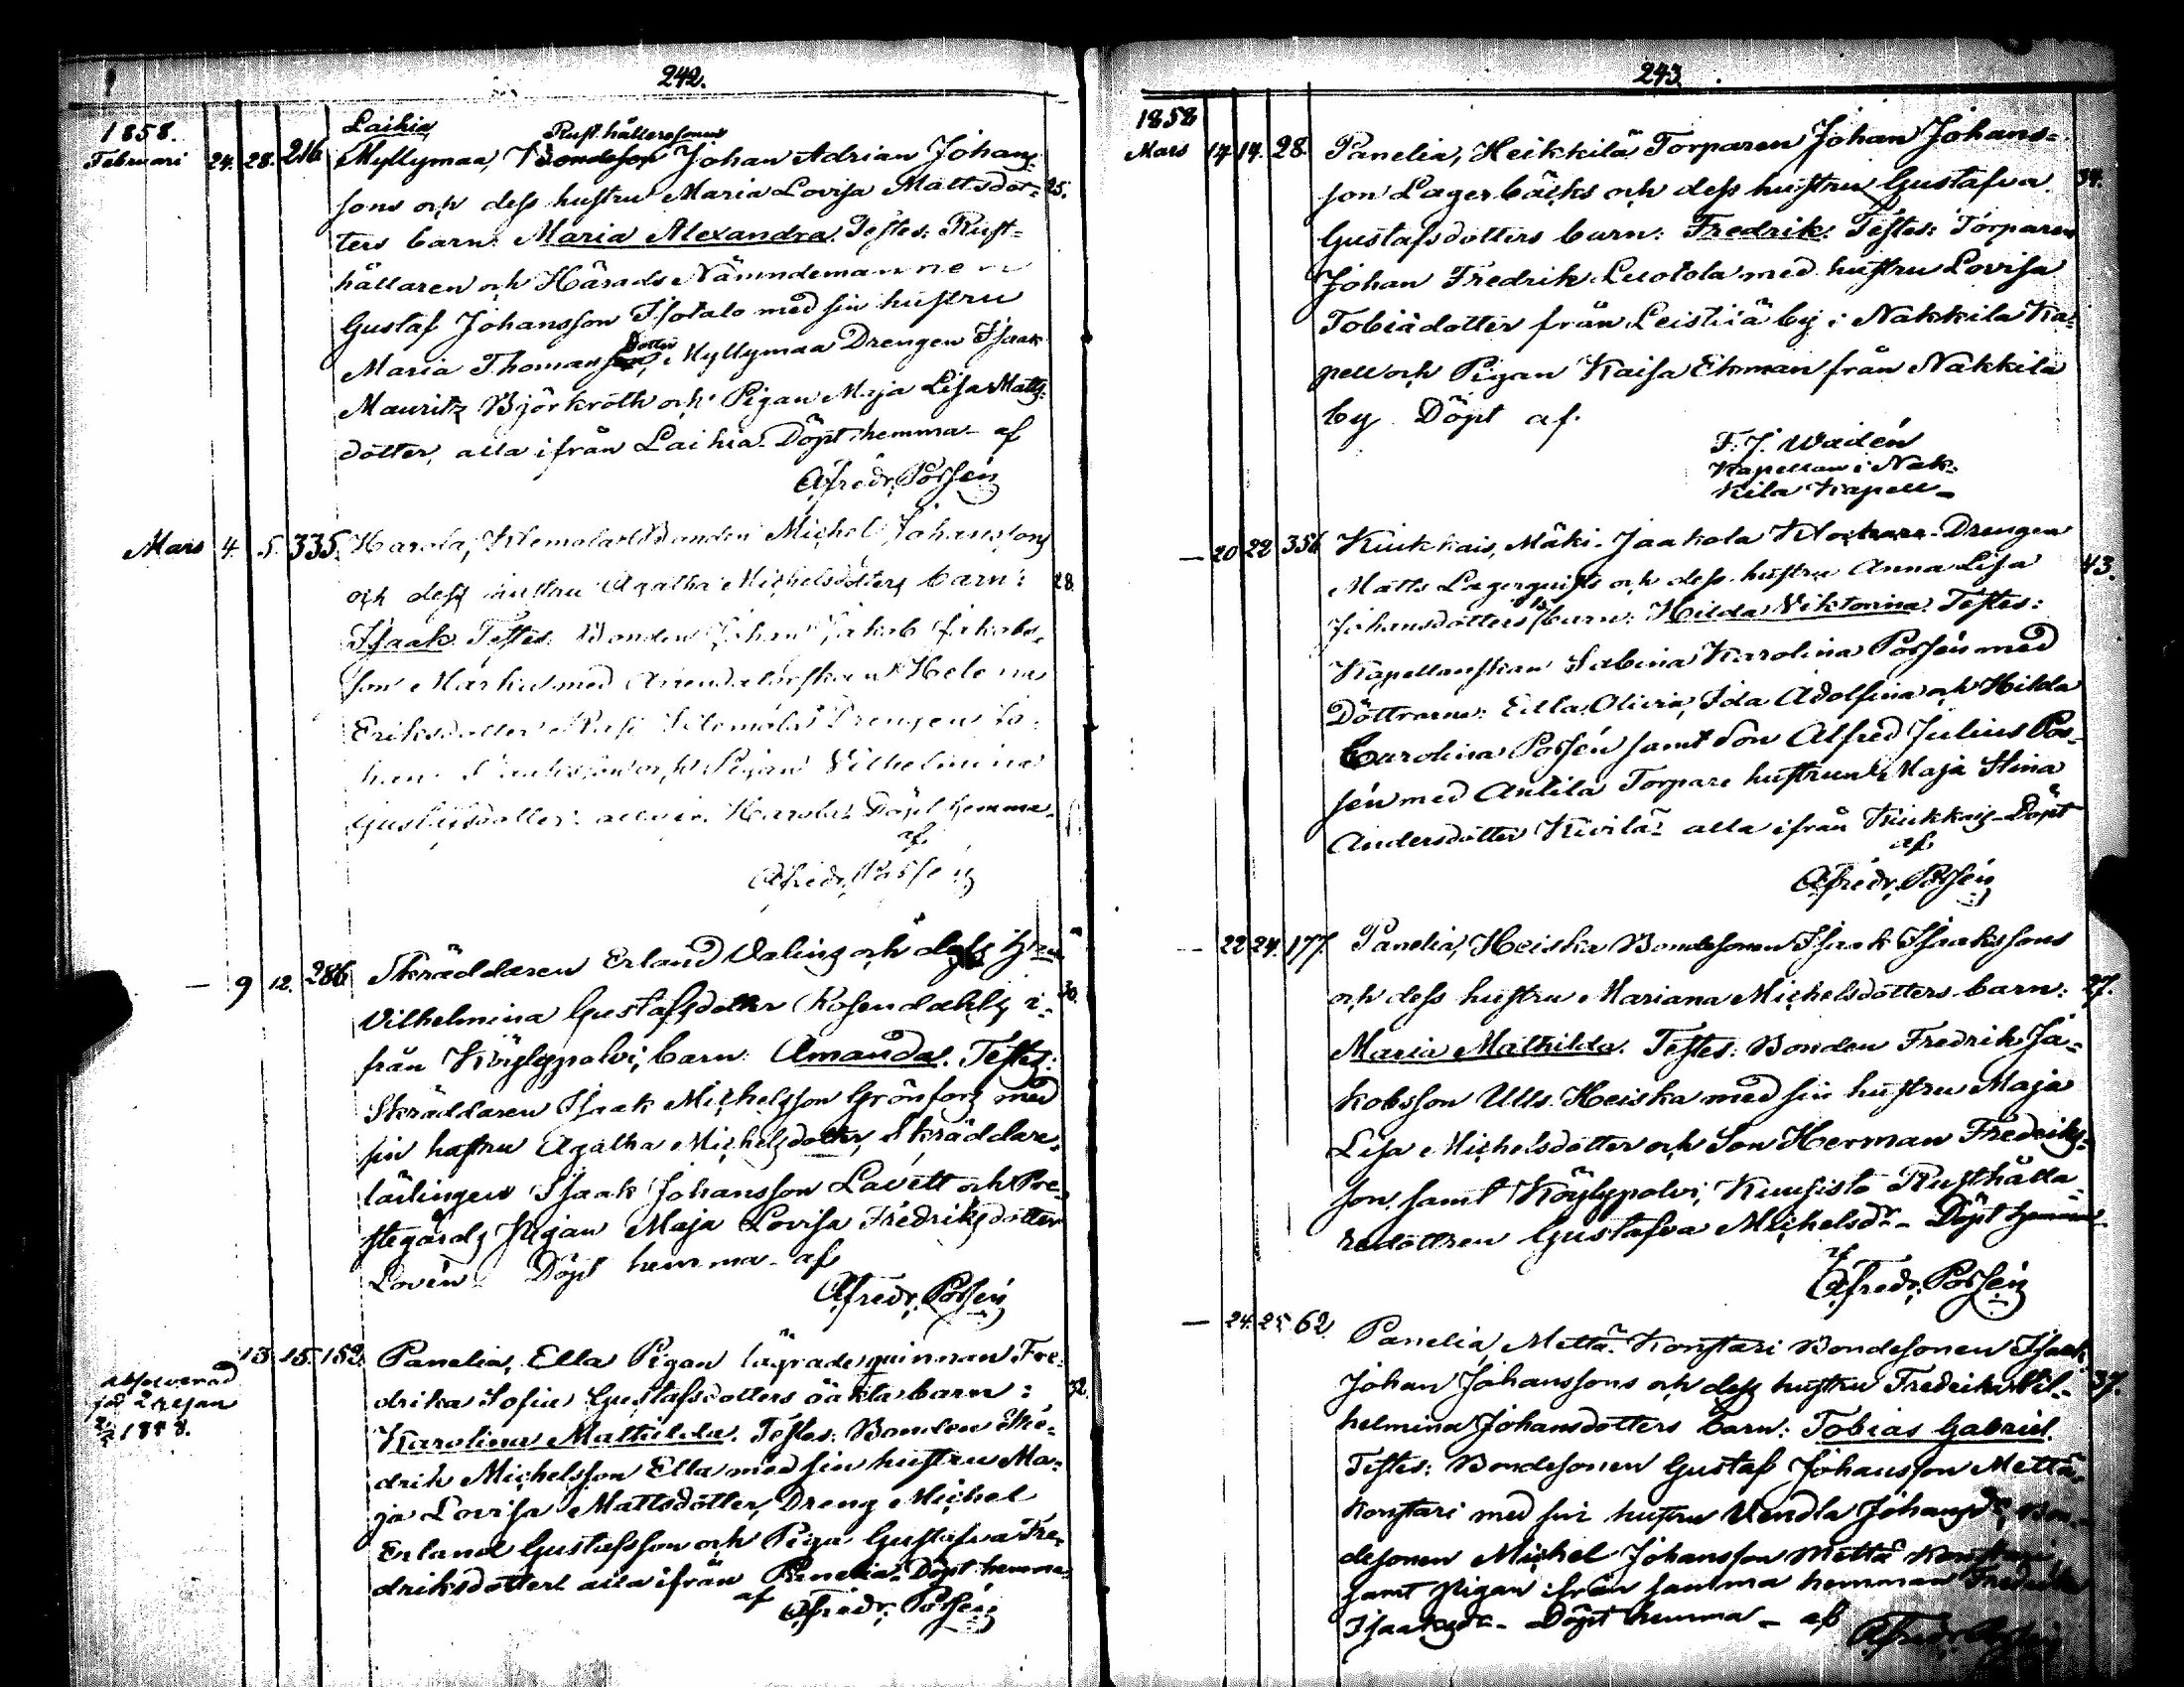 242.
1858.
Februari 24. 28. 216
Laihia
Rusthållaresonens
Myllymaa, Bondeson Johan Adrian Johans-
sons och dess hustru Maria Lovisa Mattsdot- 25.
ters barn: Maria Alexandra. Testes: Rust-
hållaren och Härads Nämndemannen
Gustaf Johansson Isotalo med sin hustru
Maria Thomasdotter, Myllymaa Drengen Isaak
Mauritz Björkroth och Pigan Maja Lisa Matts-
dotter, alla ifrån Laihia. Döpt hemma af
Afredr. Possén
Mars 4. 5. 335. Harola, Klemola Bonden Michel Johanssons
och dess hustru Agatha Michelsdotters barn: 28.
Isaak. Testes: Bonden Johan Jakob Jakobs-
son Marku med Helena
Eriksdotter Drengen Jo-
han och Pigan Vilhelmina
Gustafsdotter Harola. Döpt hemma
af
Afredr. Possén
— 9 12. 286 Skräddaren Erland Valins och dess
Vilhelmina Gustafsdotter Rosendahls i- 30.
från Köylypolvi, barn: Amanda. Testes:
Skräddaren Isaak Michelsson Grönfors med
sin hustru Agatha Michelsdotter, Skräddare-
lärlingen Isaak Johansson Lavett och Pre-
stegårds Pigan Maja Lovisa Fredriksdotter
Lovén. Döpt hemma af
Afredr. Possén
13. 15. 152. Panelia, Ella Pigan lägrade quinnan Fre-
2 resan
1858.
drika Sofia Gustafsdotters oäkta barn: 32.
Karolina Mathilda. Testes: Bonden
drik Michelsson Ella med sin hustru Ma-
ja Lovisa Mattsdotter, Dreng Michel
Erland Gustafsson och Piga Gustafva Fre-
driksdotter alla ifrån Panelia. Döpt hemma
af Afredr. Possén
243
1858
Mars 14. 14. 28. Panelia, Heikkilä Torparen Johan Johans-
son Lagerbäcks och dess hustru Gustafva 34.
Gustafsdotters barn: Fredrik. Testes: Torparen
Johan Fredrik Luotola med hustru Lovisa
Tobiädotter från Leistilä by i Nakkila Ka-
pell och Pigan Kaisa Ekman från Nakkila
by. Döpt af.
F. J. Wadén
Kapellan i Nak-
kila Kapell
— 20 22 356 Kiukkais, Mäki-Jaakola Klockare-Drengen
Matts Lagerquists och dess hustru Anna Lisa 43.
Johansdotters barn: Hilda Viktorina. Testes:
Kapellanskan Sabina Karolina Possén med
Döttrarna: Eilla Olivia, Ida Adolfina och Hilda
Carolina Possén samt Son Alfred Julius Pos-
sén med Anttila Torpare hustrun Maja Stina
Andersdotter Kivilä alla ifrån Kiukkais. Döpt
af
Afredr. Possén
— 22 24. 177. Panelia, Heiska Bondesonen Isaak Isaakssons
och dess hustru Mariana Michelsdotters barn: 27.
Maria Mathilda. Testes: Bonden Fredrik Ja-
kobsson Ulls Heiska med sin hustru Maja
Lisa Michelsdotter och Son Herman Fredriks-
son, samt Köylypolvi, Kuusisto Rusthålla-
redottren Gustafva Michelsdr. Döpt hemma
af
Afredr. Possén
— 24. 25 62. Panelia, Mettä-Konstari Bondesonen Isaak
Johan Johanssons och dess hustru Fredrika Vil- 37.
helmina Johansdotters barn: Tobias Gabriel.
Testes: Bondesonen Gustaf Johansson Mettä-
Konstari med sin hustru Vendla Johansdr, Bon-
desonen Michel Johansson Mettä Konstari,
samt pigan ifrån samma hemman Fredrika
Isaaksdr. Döpt hemma af
Afredr. Possén